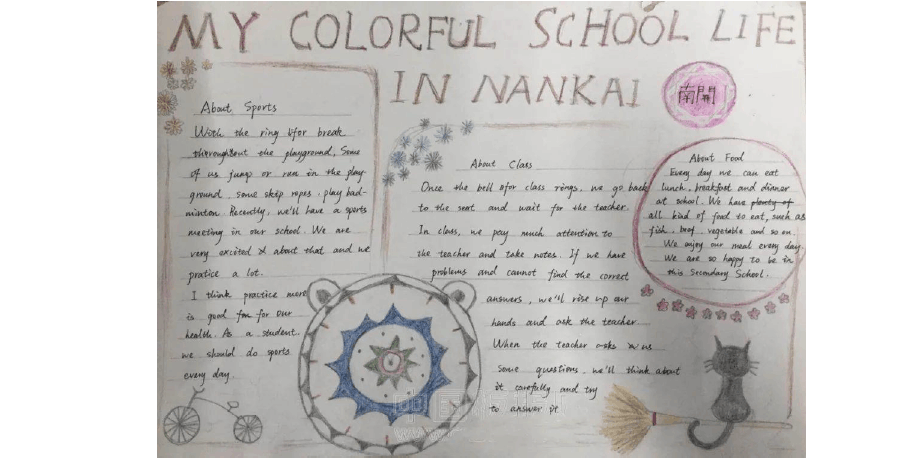 MY COLORFUL SCHOOL LIFE
IN NANKAI
南開
About Sports
With the ring for break
throughout the playground, Some
of us jump or run in the play-
ground, some skip ropes, play bad-
minton. Recently, we'll have a sports
meeting in our school. We are
very excited about that and we
pratice a lot.
I think practice more
is good for for our
health. As a student.
we should do sports
every day
About Class
Once the bell for class rings, we go back
to the seat and wait for the teacher.
In class, we pay much attention to
the teacher and take notes. If we have
problems and cannot find the correct
answers, we'll rise up our
hands and ask the teacher
When the teacher asks us
some questions, we'll think about
it carefully and try
to answer it
About Food
Every day we can eat
lunch, breakfast and dinner
at school. We have plenty of
all kind of food to eat, such as
fish, beef, vegetable and so on.
We enjoy our meal every day.
We are so happy to be in
this Secondary School.